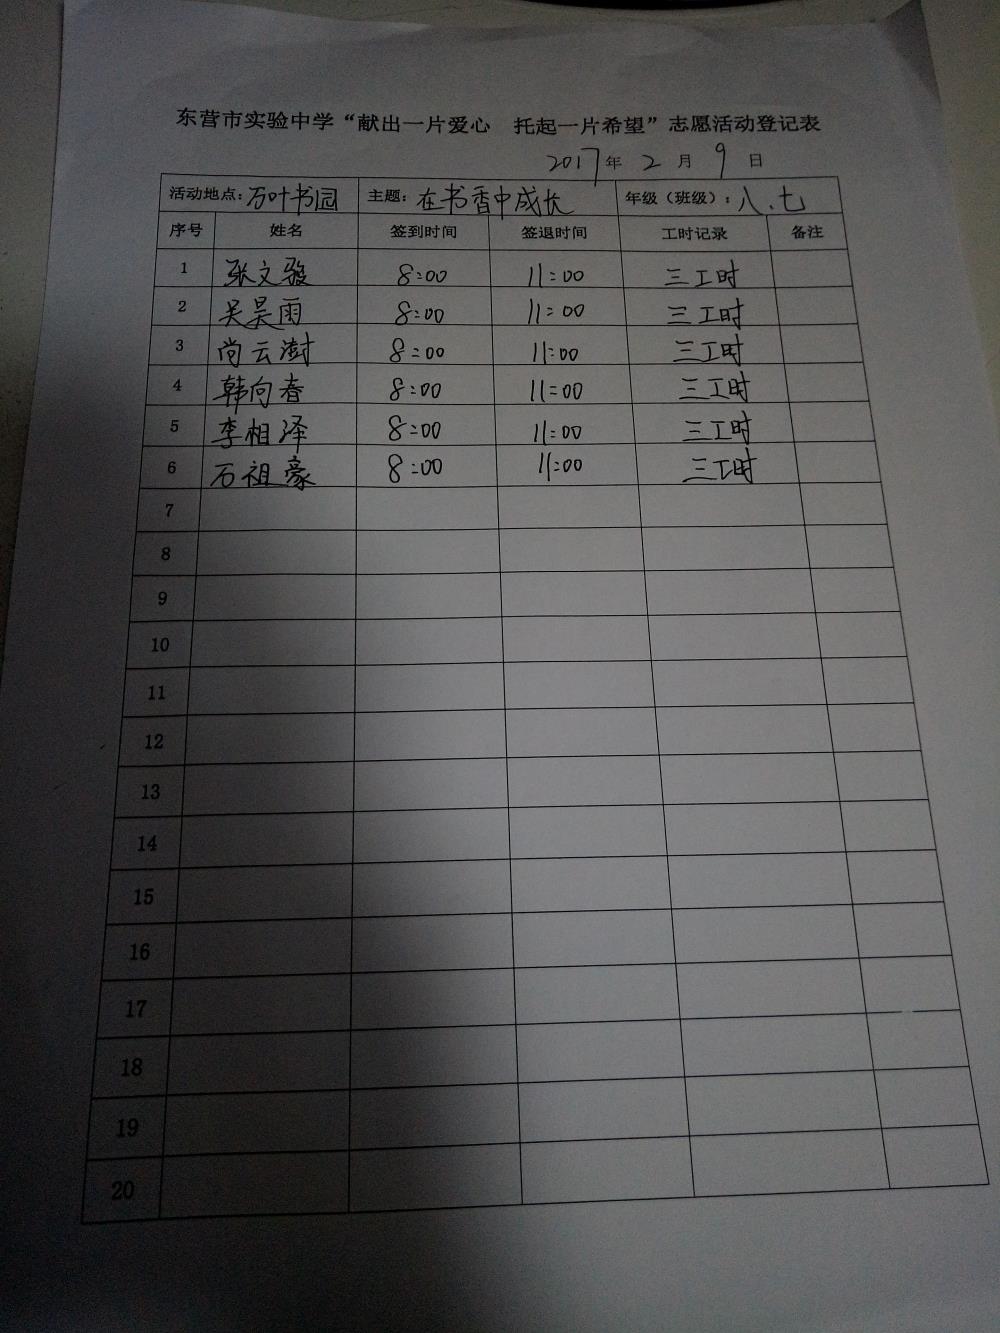 东营市实验中学“献出一片爱心 托起一片希望”志愿活动登记表
2017年 2 月 9 日
活动地点：万叶书园 主题：在书香中成长 年级（班级）：八．七
序号 姓名 签到时间 签退时间 工时记录 备注
1 张文骏 8:00 11:00 三工时
2 吴昊雨 8:00 11:00 三工时
3 尚云澍 8:00 11:00 三工时
4 韩向春 8:00 11:00 三工时
5 李相泽 8:00 11:00 三工时
6 石祖豪 8:00 11:00 三工时
7
8
9
10
11
12
13
14
15
16
17
18
19
20